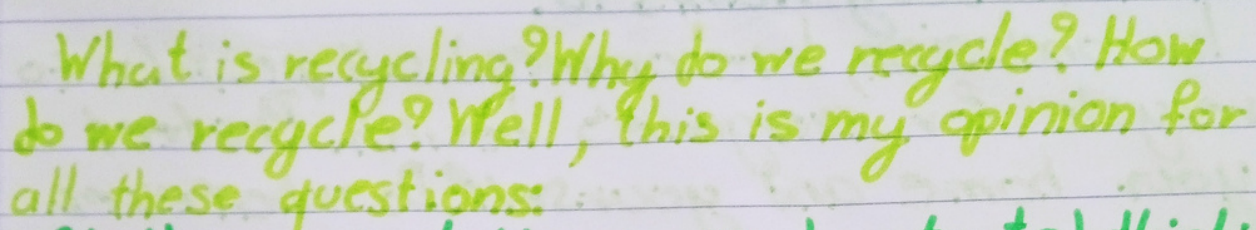 What is recycling? Why do we recycle? How
do we recycle? Well, this is my opinion for
all these questions: